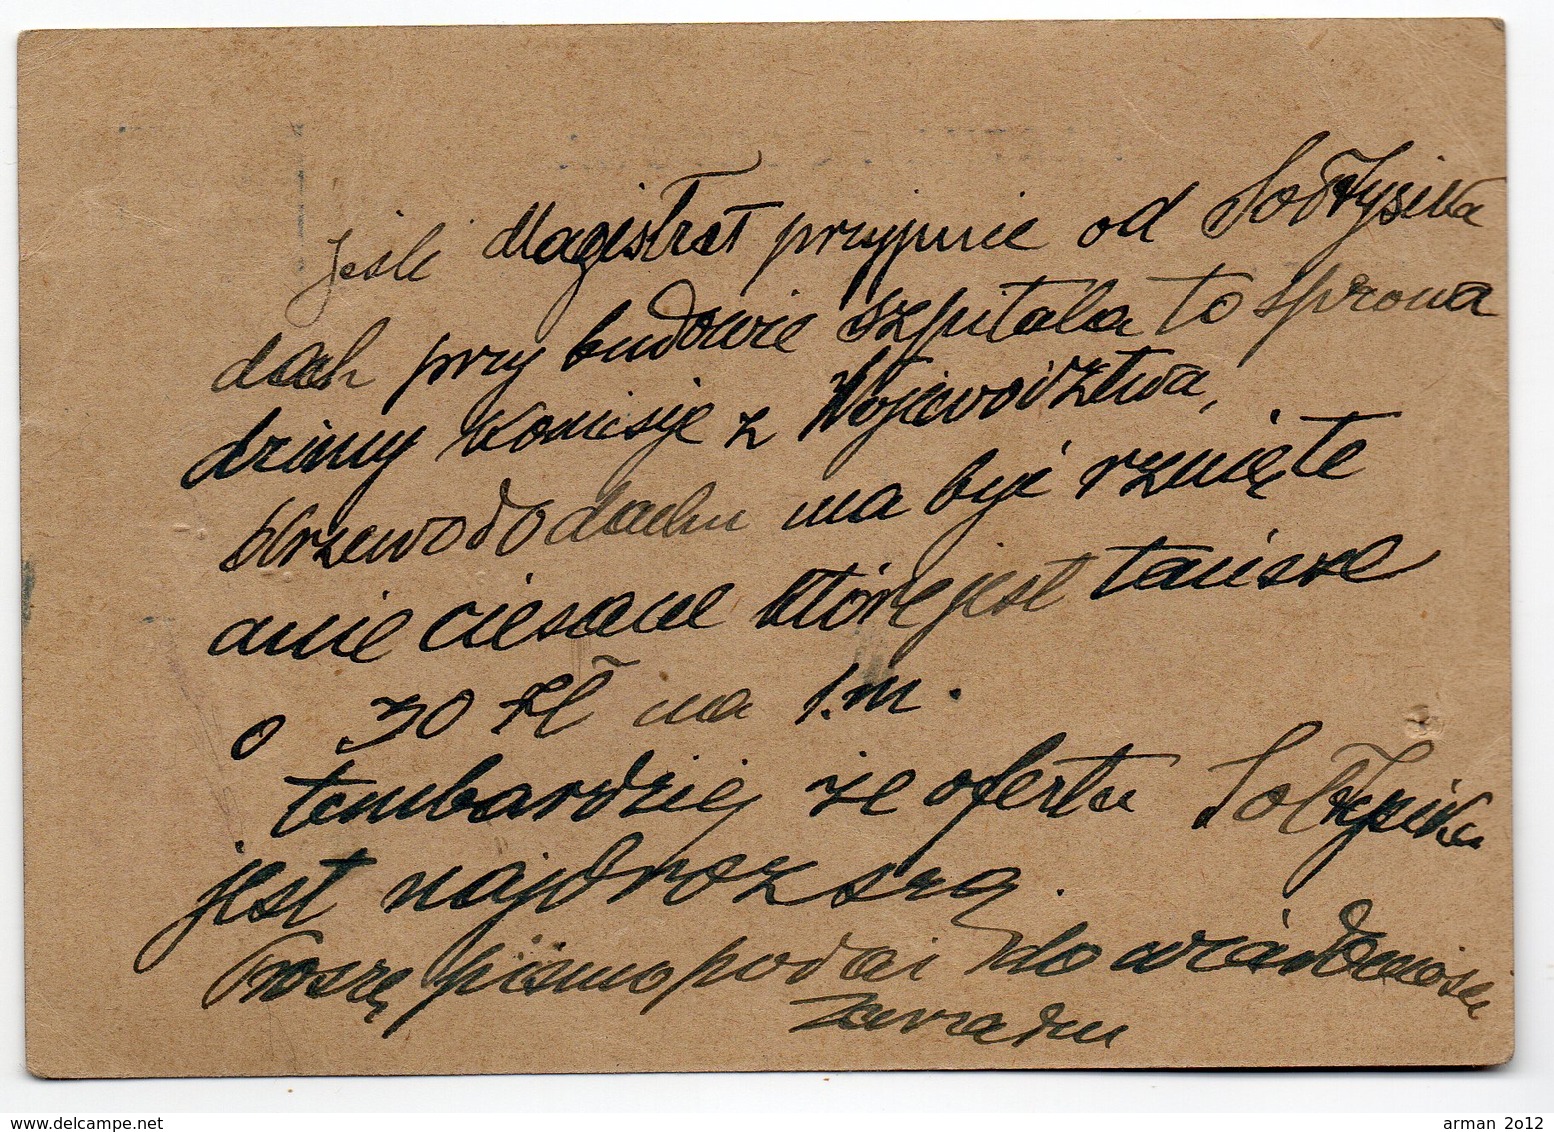 Jeśli Magistrat przyjmie od Sołtysika
dach przy budowie szpitala to sprowa
dzimy komisję z Wojewodztwa,
drzewo do dachu ma być rznięte
a nie ciesane które jest tańsze
o 30 zł na 1.m.
tembardziej że oferta Sołtysika
jest najdrozszą.
Proszę pismo podać do wiadomości
Zarządu
www.delcampe.net
arman 2012